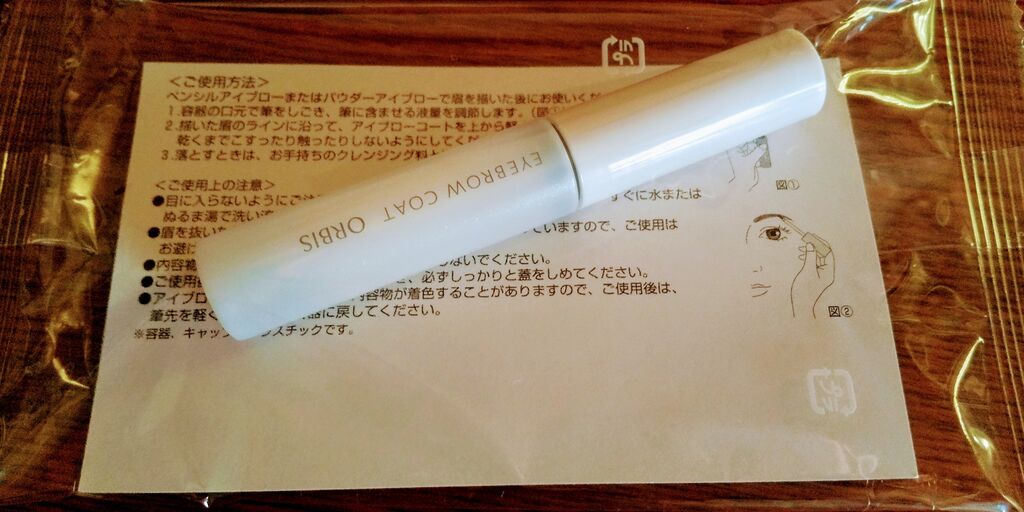 プラ
<ご使用方法>
ペンシルアイブローまたはパウダーアイブローで眉を描いた後にお使いくだ
1.容器の口元で筆をしごき、筆に含ませる液量を調節します。(図①
2.描いた眉のラインに沿って、アイブローコートを上から軽
乾くまでこすったり触ったりしないようにしてくだ
3.落とすときは、お手持ちのクレンジング料と
図①
<ご使用上の注意>
●目に入らないようにご注 すぐに水または
ぬるま湯で洗い流
●眉を抜いた ていますので、ご使用は
お避け
●内容物 ないでください。
●ご使用後 、必ずしっかりと蓋をしめてください。
●アイブロ 内容物が着色することがありますので、ご使用後は、
筆先を軽く 容器に戻してください。
※容器、キャップ スチックです。
図②
EYEBROW COAT ORBIS
プラ